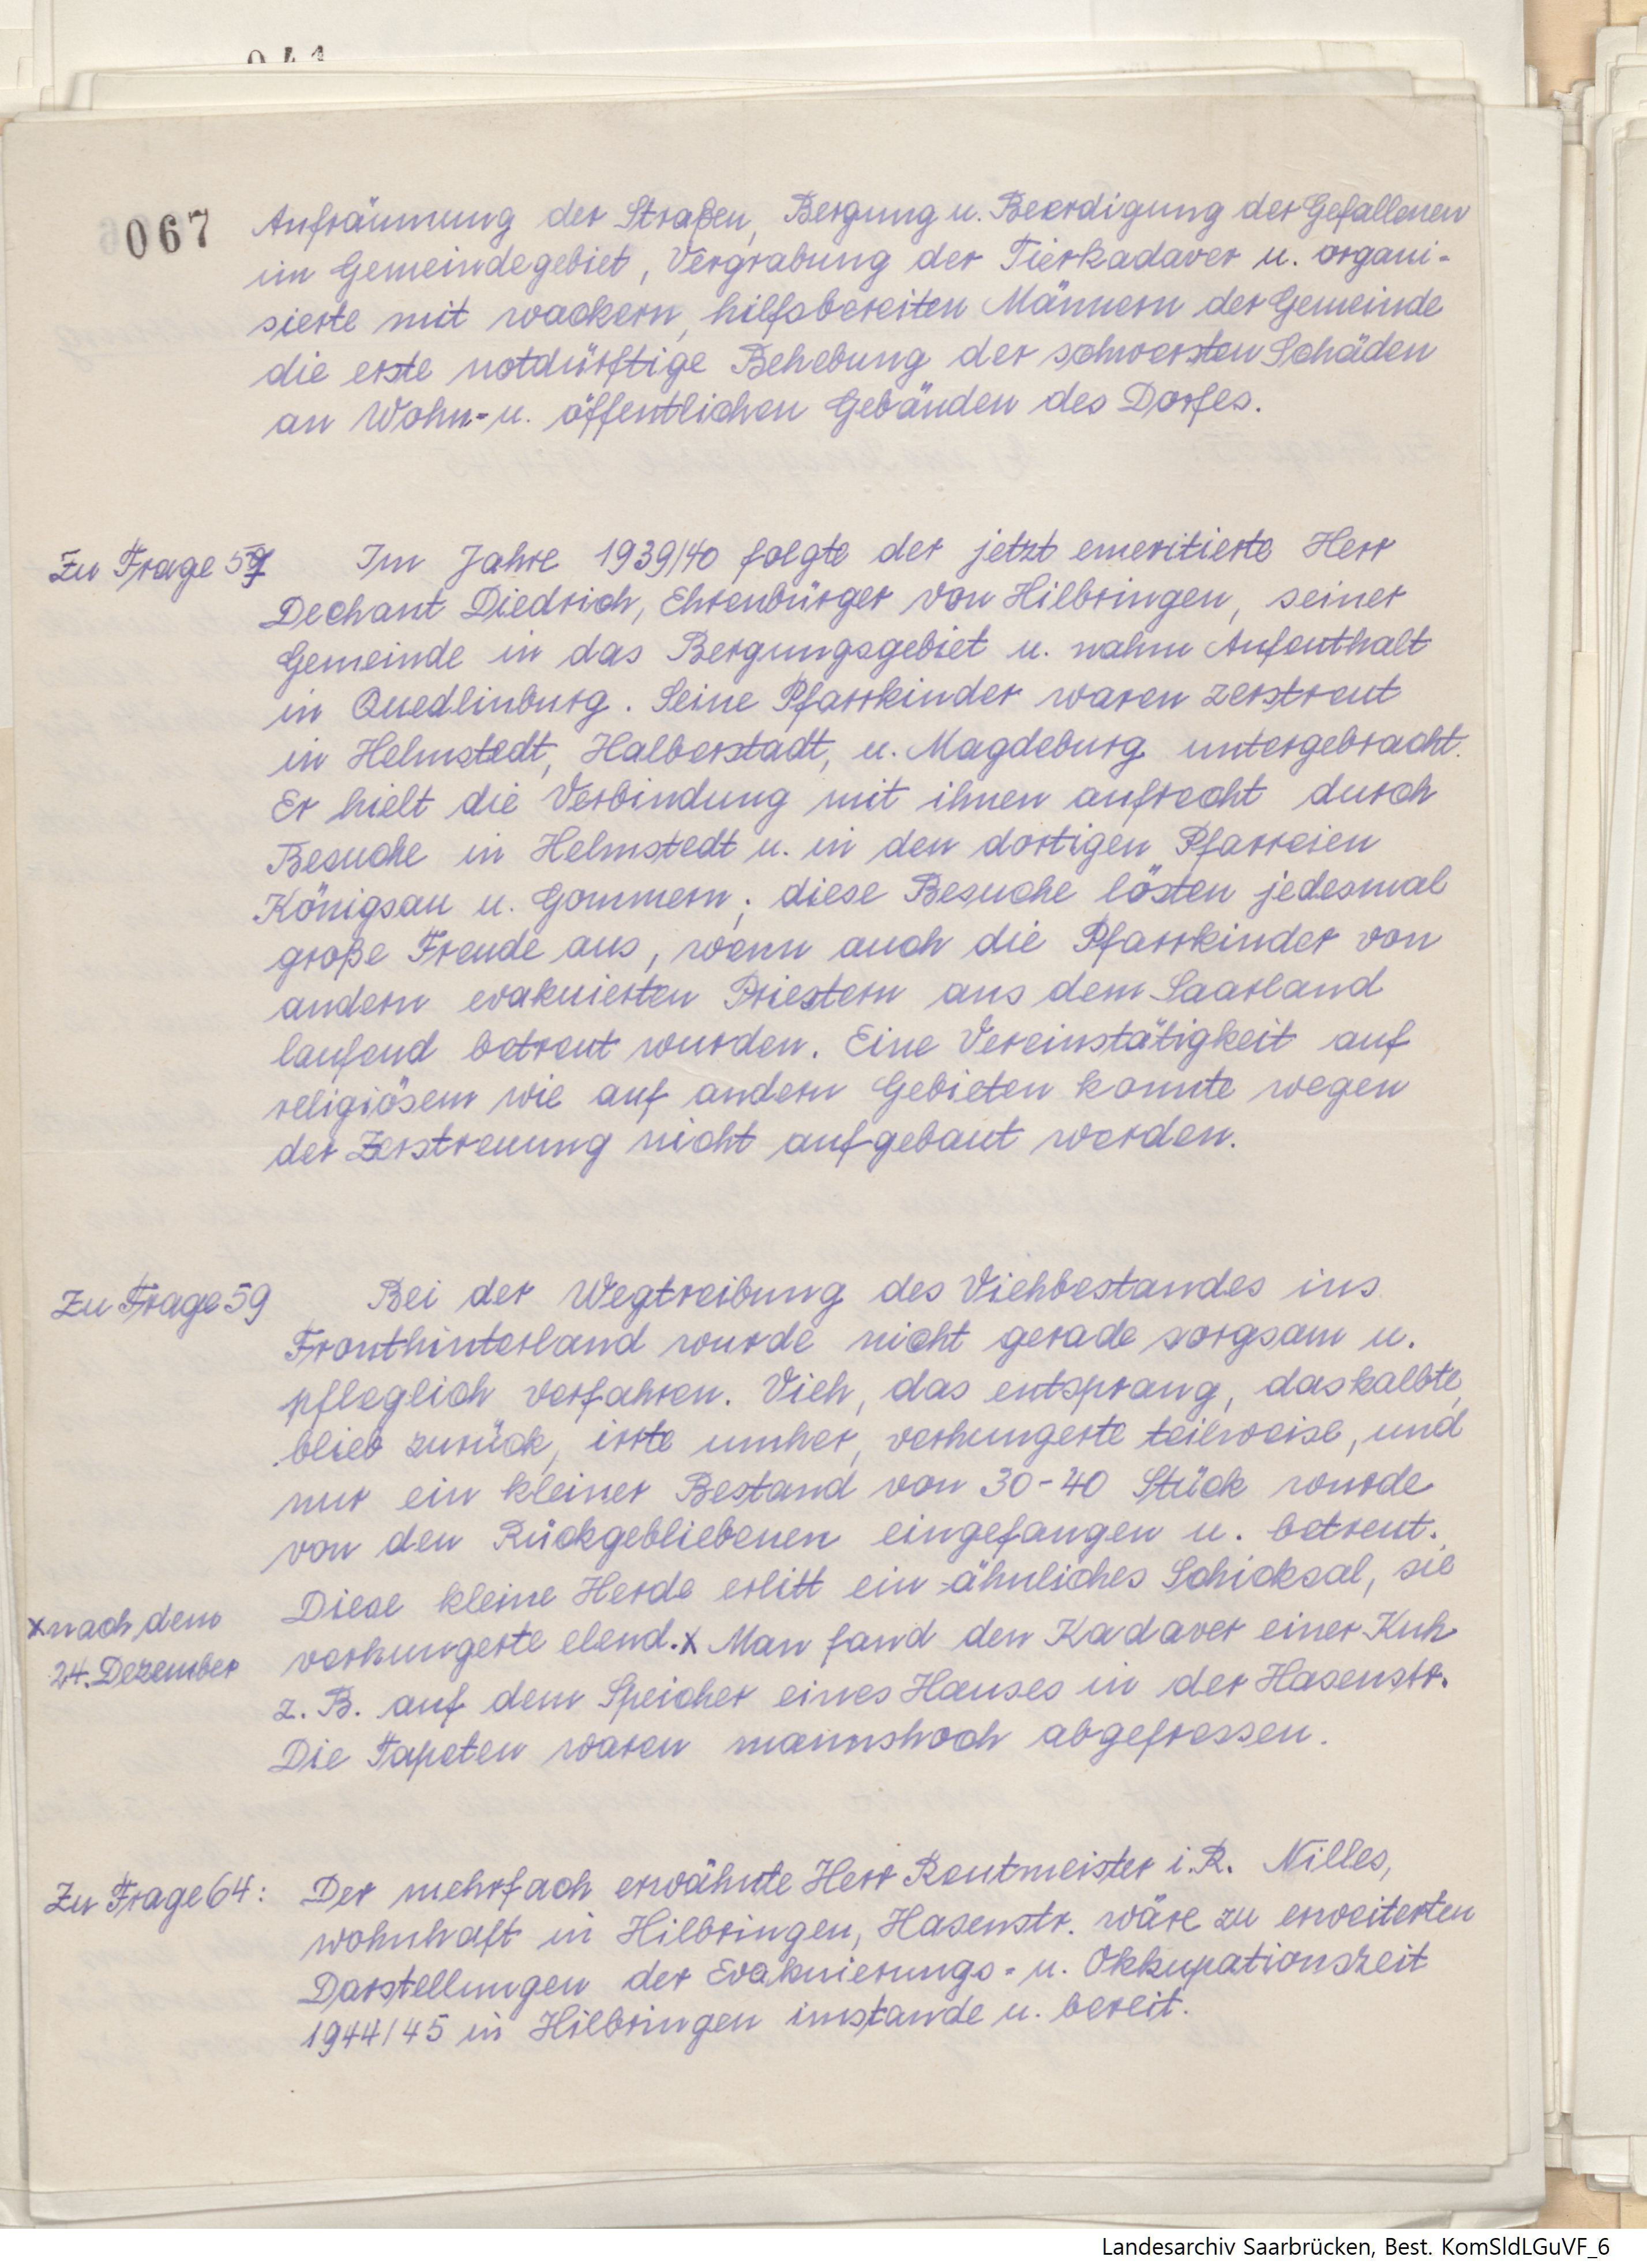 067
Aufräumung der Straßen, Bergung u. Beerdigung der Gefallenen
im Gemeindegebiet, Vergrabung der Tierkadaver u. organi-
sierte mit wackern, hilfsbereiten Männern der Gemeinde
die erste notdürftige Behebung der schwersten Schäden
an Wohn- u. öffentlichen Gebäuden des Dorfes.
Zu Frage 57 Im Jahre 1939/40 folgte der jetzt emeritierte Herr
Dechant Diedrich, Ehrenbürger von Hilbringen, seiner
Gemeinde in das Bergungsgebiet u. nahm Aufenthalt
in Quedlinburg. Seine Pfarrkinder waren zerstreut
in Helmstedt, Halberstadt, u. Magdeburg untergebracht.
Er hielt die Verbindung mit ihnen aufrecht durch
Besuche in Helmstedt u. in den dortigen Pfarreien
Königsau u. Gommern; diese Besuche lösten jedesmal
große Freude aus, wenn auch die Pfarrkinder von
andern evakuierten Priestern aus dem Saarland
laufend betreut wurden. Eine Vereinstätigkeit auf
religiösem wie auf andern Gebieten konnte wegen
der Zerstreuung nicht aufgebaut werden.
Zu Frage 59 Bei der Wegtreibung des Viehbestandes ins
Fronthinterland wurde nicht gerade sorgsam u.
pfleglich verfahren. Vieh, das entsprang, das kalbte,
blieb zurück, irrte umher, verhungerte teilweise, und
nur ein kleiner Bestand von 30-40 Stück wurde
von den Rückgebliebenen eingefangen u. betreut.
Diese kleine Herde erlitt ein ähnliches Schicksal, sie
x nach dem
verhungerte elend. x Man fand den Kadaver einer Kuh
24. Dezember
z. B. auf dem Speicher eines Hauses in der Hasenstr.
Die Tapeten waren mannshoch abgefressen.
Zu Frage 64: Der mehrfach erwähnte Herr Rentmeister i. R. Nilles,
wohnhaft in Hilbringen, Hasenstr. wäre zu erweiterten
Darstellungen der Evakuierungs- u. Okkupationszeit
1944/45 in Hilbringen imstande u. bereit.
Landesarchiv Saarbrücken, Best. KomSldLGuVF_6